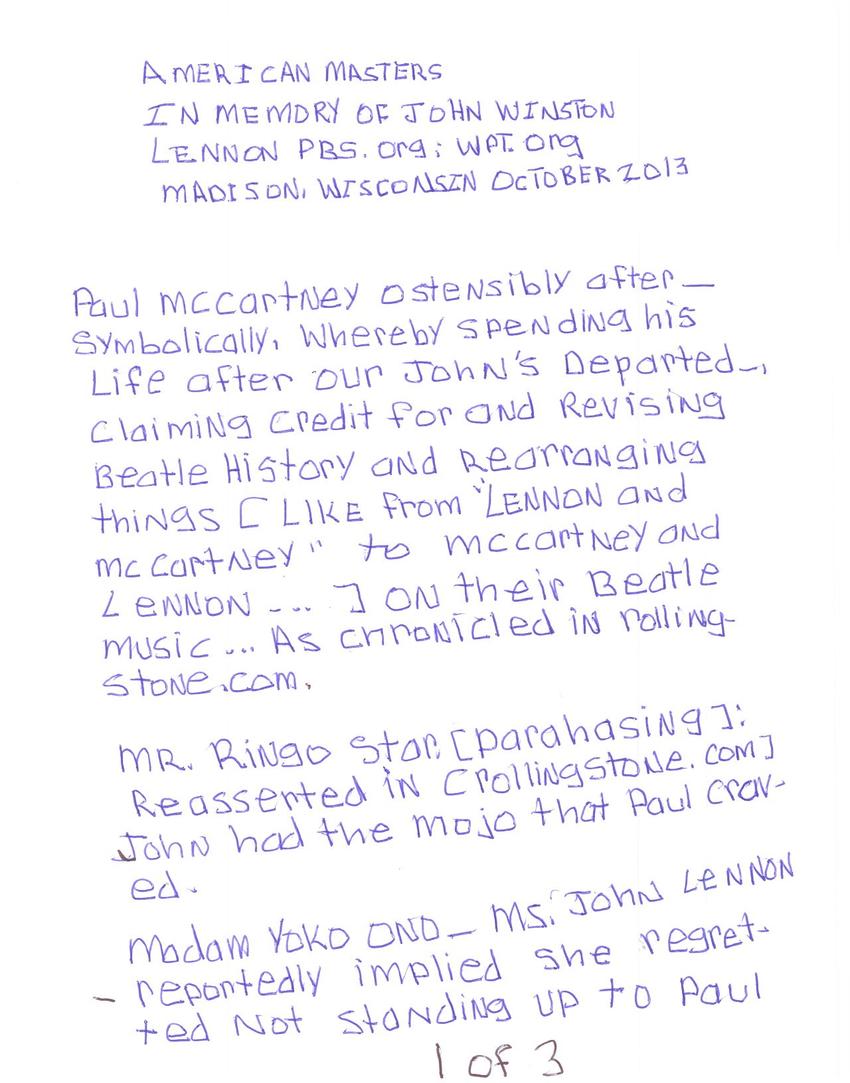 AMERICAN MASTERS
IN MEMORY OF JOHN WINSTON
LENNON PBS.org; WPT.org
MADISON, WISCONSIN OCTOBER 2013
Paul McCartney ostensibly after—
Symbolically, Whereby spending his
Life after our JOHN'S Departed—,
Claiming Credit for and Revising
Beatle History and Rearranging
things [ LIKE from "LENNON and
McCartney" to McCartney and
LENNON ... ] ON their Beatle
music... As chronicled in rolling-
stone.com.
MR. Ringo Star, [parahasing]:
Reasserted in [rollingstone.com]
John had the mojo that Paul Crav-
ed.
Madam YOKO ONO— Ms. John LENNON
- reportedly implied she regret-
ted Not Standing up to Paul
1 of 3